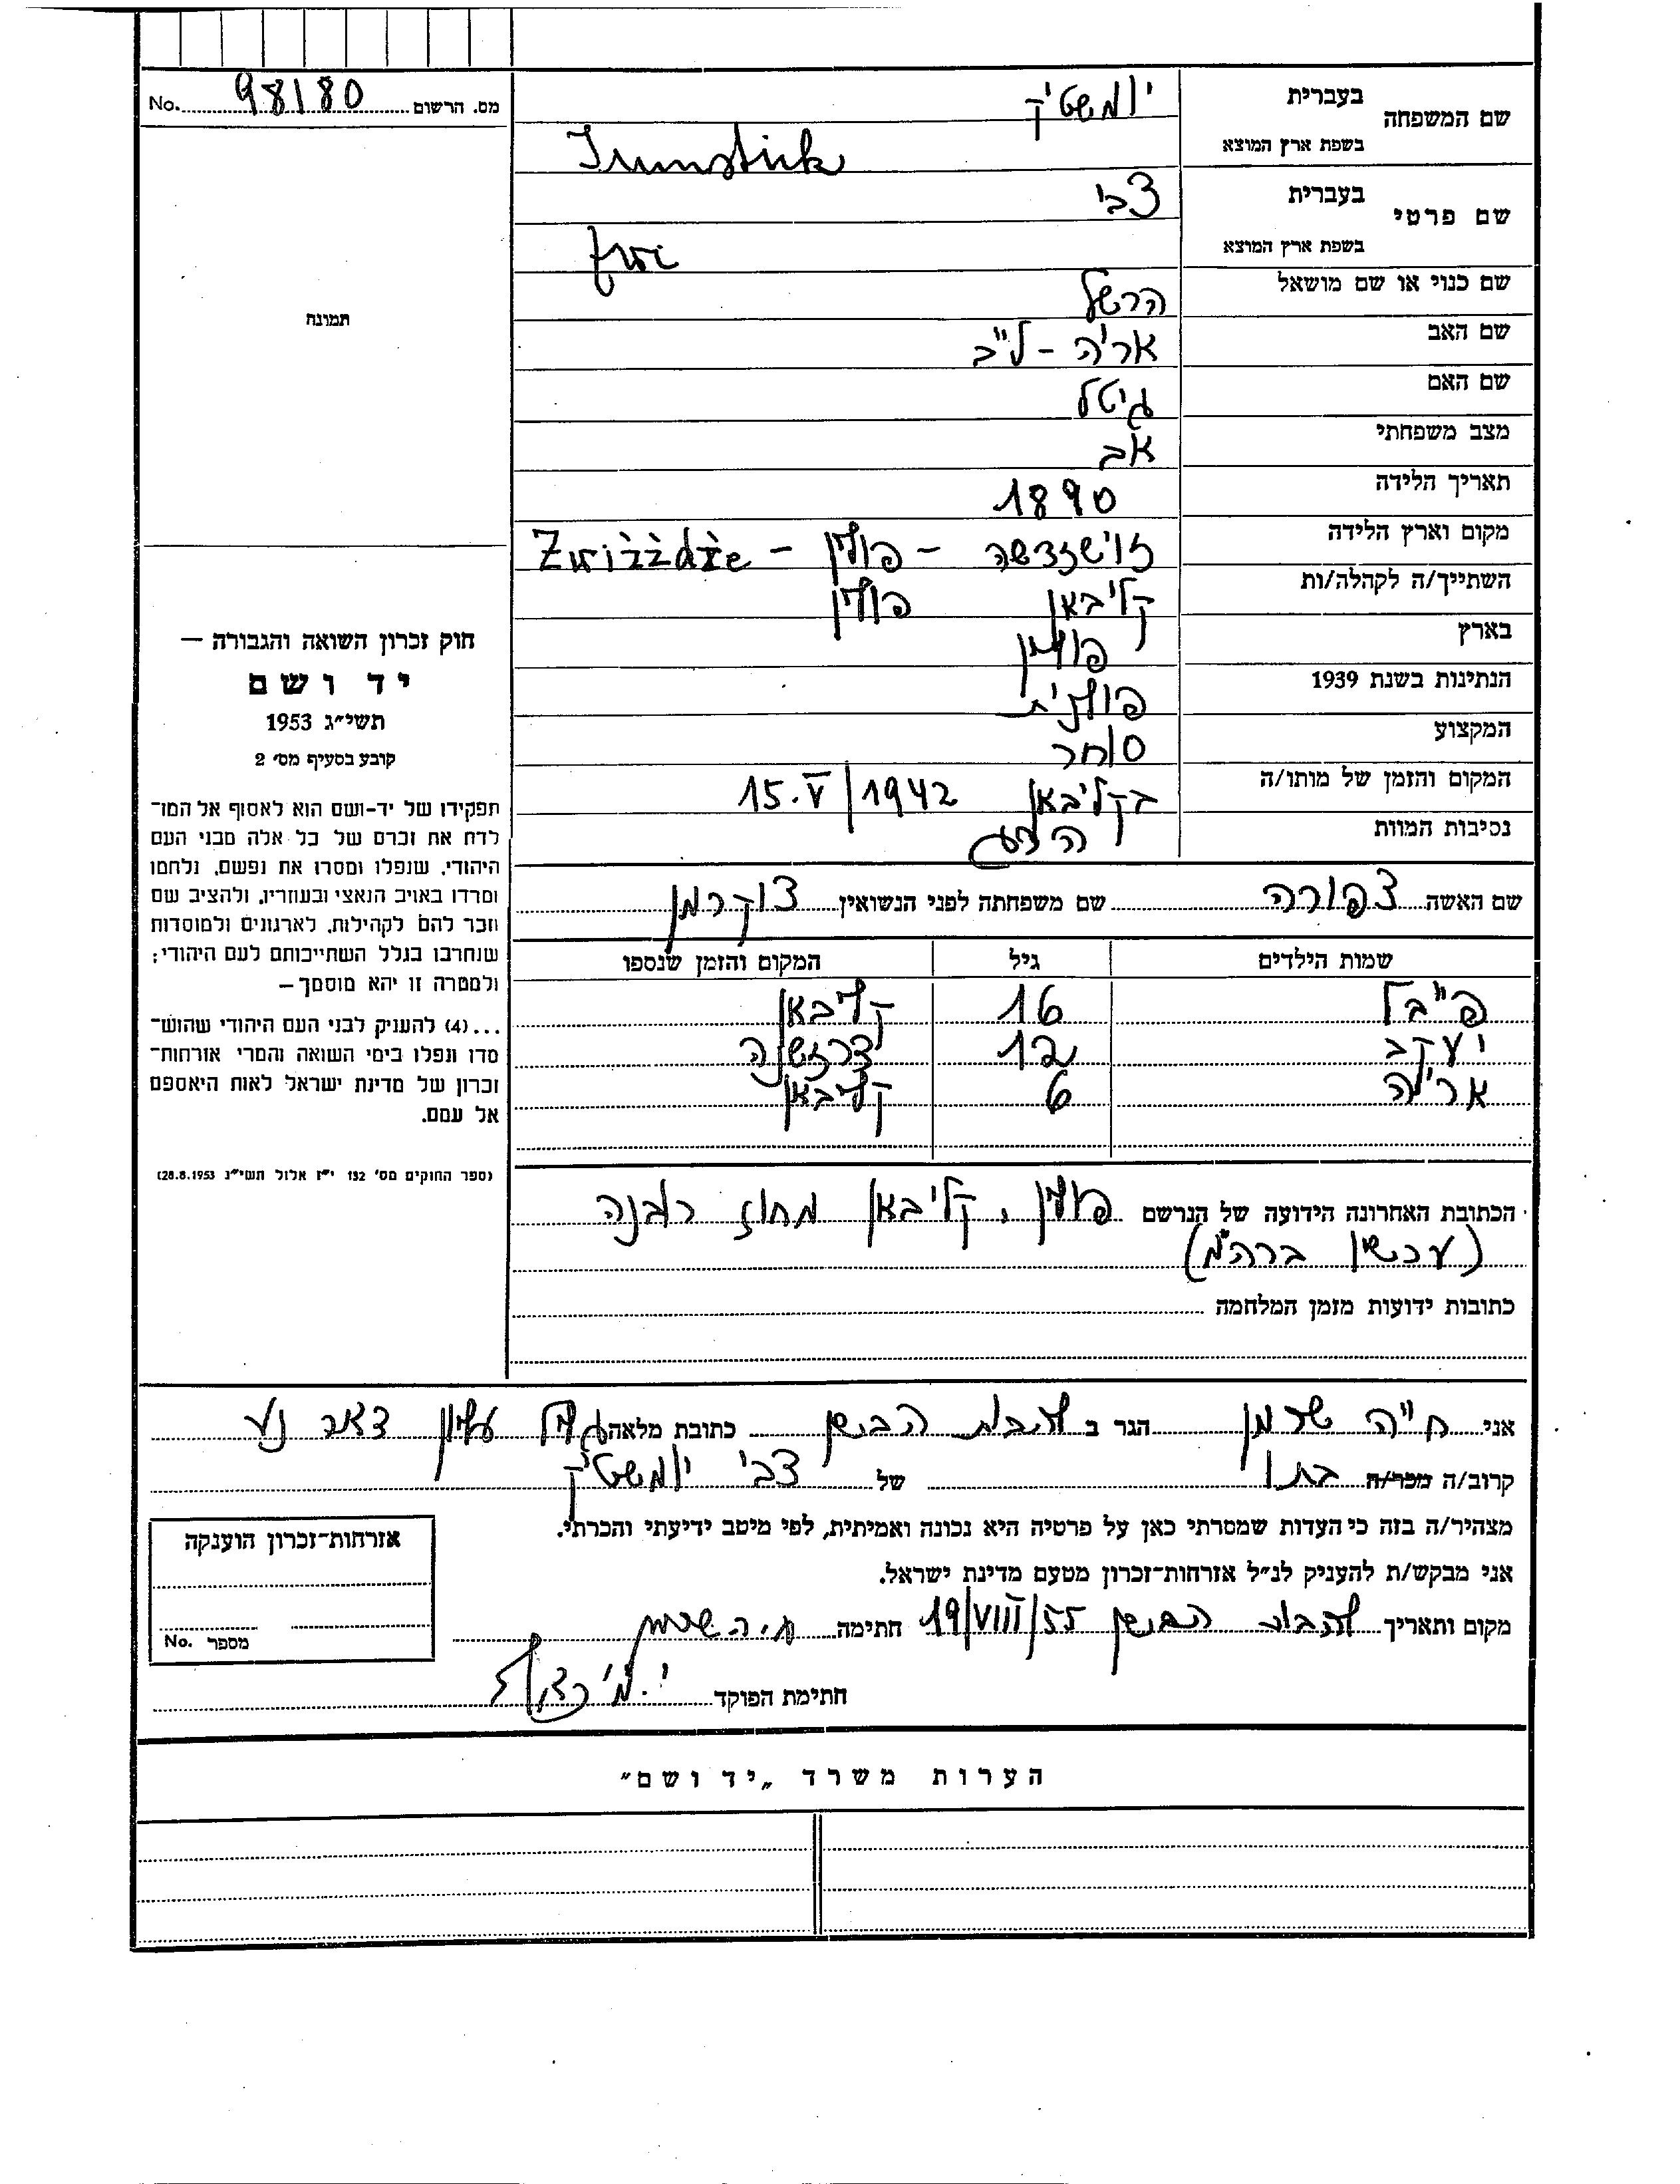 מס. הרשום 98180 No.
תמונה
חוק זכרון השואה והגבורה —
יד ושם
תשי״ג 1953
קובע בסעיף מס׳ 2
תפקידו של יד-ושם הוא לאסוף אל המו־
לדת את זכרם של כל אלה מבני העם
היהודי, שנפלו ומסרו את נפשם, נלחמו
ומרדו באויב הנאצי ובעוזריו, ולהציב שם
וזכר להם לקהילות, לארגונים ולמוסדות
שנחרבו בגלל השתייכותם לעם היהודי;
ולמטרה זו יהא מוסמך —
...(4) להעניק לבני העם היהודי שהוש־
מדו ונפלו בימי השואה והמרי אזרחות־
זכרון של מדינת ישראל לאות היאספם
אל עמם.
(ספר החוקים מס׳ 132 י״ז אלול תשי״ג 28.8.1953)
שם המשפחה בעברית יומשטיק
בשפת ארץ המוצא Jumsztik
שם פרטי בעברית צבי
בשפת ארץ המוצא
שם כנוי או שם מושאל הרשל
שם האב אריה - לייב
שם האם גיטל
מצב משפחתי אב
תאריך הלידה 1890
מקום וארץ הלידה - פולין -
השתייך/ה לקהלה/ות קליבאן פולין
בארץ פולין
הנתינות בשנת 1939 פולנית
המקצוע סוחר
המקום והזמן של מותו/ה בקליבאן 15.V/1942
נסיבות המוות
שם האשה צפורה שם משפחתה לפני הנשואין צוקרמן
שמות הילדים גיל המקום והזמן שנספו
פייבל 16 קליבאן
יעקב 12
אריה 6 קליבאן
הכתובת האחרונה הידועה של הנרשם פולין, קליבאן מחוז רובנה
(עכשיו ברה״מ)
כתובות ידועות מזמן המלחמה
אני חייה שרמן הגר ב להבות הבשן כתובת מלאה גליל עליון דאר נע
קרוב/ה מכר/ה בתו של צבי יומשטיק
מצהיר/ה בזה כי העדות שמסרתי כאן על פרטיה היא נכונה ואמיתית, לפי מיטב ידיעתי והכרתי.
אני מבקש/ת להעניק לנ״ל אזרחות־זכרון מטעם מדינת ישראל.
מקום ותאריך להבות הבשן 19/VIII/55 חתימה ח.ה שרמן
חתימת הפוקד
אזרחות־זכרון הוענקה
מספר No.
הערות משרד „יד ושם״